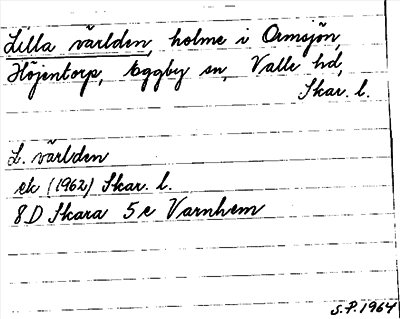 Lilla världen, holme i Ormsjön,
Höjentorp, Eggby sn, Valle hd,
Skar. l.
L. världen
ek (1962) Skar. l.
8D Skara 5e Varnhem
S.P. 1964